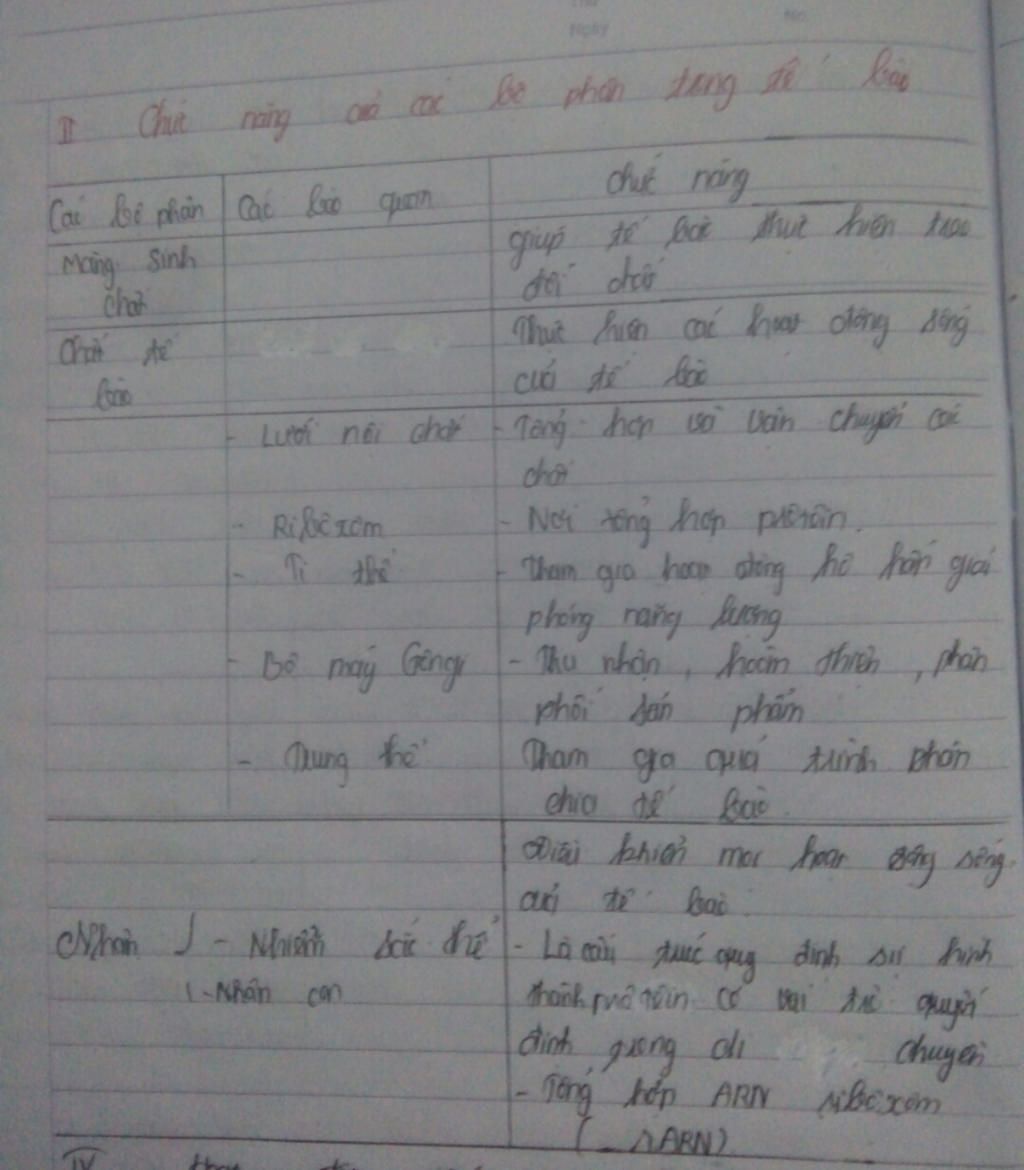 Ngày No
II Chức năng của các bộ phận trong tế bào
Các bộ phận Các bào quan Chức năng
Màng sinh chất giúp tế bào thực hiện trao
đổi chất
Chất tế bào Thực hiện các hoạt động sống
của tế bào
- Lưới nội chất - Tổng hợp và vận chuyển các
chất
- Ribôxôm - Nơi tổng hợp prôtêin.
- Ti thể - Tham gia hoạt động hô hấp giải
phóng năng lượng
- Bộ máy Gôngi - Thu nhận, hoàn thiện, phân
phối sản phẩm
- Trung thể Tham gia quá trình phân
chia tế bào.
Điều khiển mọi hoạt động sống
của tế bào
Nhân - Nhiễm sắc thể - Là cấu trúc quy định sự hình
- Nhân con thành prôtêin có vai trò quyết
định di chuyền
- Tổng hợp ARN ribôxôm
(rARN)
IV